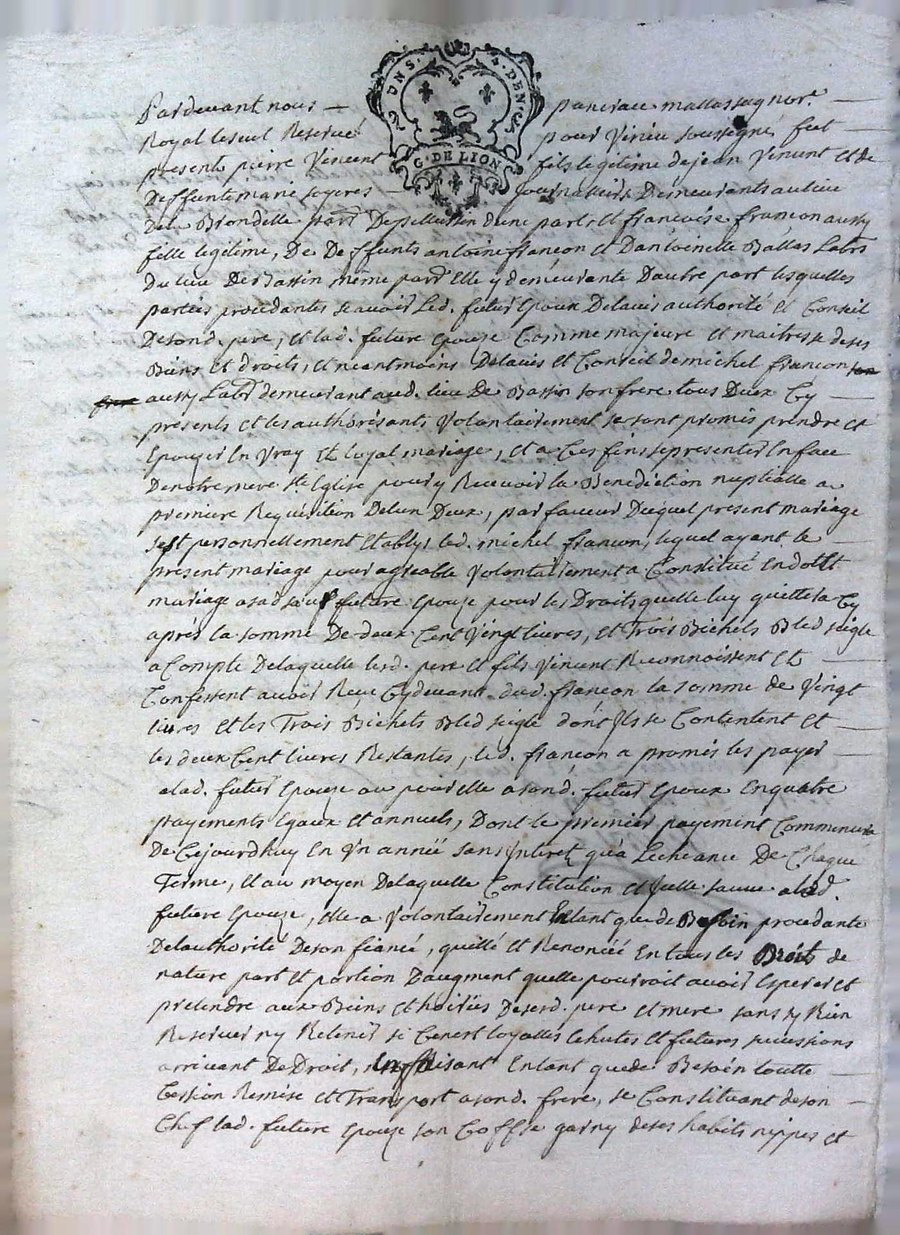 UN S. 4. DEN.
G. DE LION
Pardevant nous pancrace mallassagnor.e
Royal les.eul Reservé pour Virieu soussigné fut
presents pierre Vincent fils legitime de jean Vincent et de
Deffunte marie segeres Demeurants au lieu
De la Brondelle parr. De pellussin d'une part et francoise françon aussy
fille legitime, De Deffunts antoine françon et Dantoinette Ballas Labrs
Du lieu De Bassin même parr. Elle y demeurante Dautre part lesquelles
parteis procedantes scavoir Led. futur Epoux Delavis authorité et Conseil
De sond. pere, et lad. future Epouze Comme majeure et maitresse de ses
Biens et droits, et neantmoins Delavis et Conseil de michel françon
aussy Labr demeurant aud. lieu De Bassin son frere tous Deux Cy
presents et les authorisants Volontairement se sont promis prendre et
Epouzer En Vray et loyal mariage, et a Ces fins se presenter En face
De notre mere Ste Eglise pour y Recevoir la Benediction nuptialle a
premiere Requisition De lun Deux, par faveur Duquel present mariage
sest personnellement Etably led. michel françon, lequel ayant le
present mariage pour agreable Volontairement a Constitué En dott
mariage a sad. sœur future Epouze pour les Droits quelle luy quittera Cy
après la somme De deux Cent Vingt livres, et Trois Bichets Bled seigle
a Compte Delaquelle lesd. pere et fils Vincent Reconnoissent et
Confessent avoir Reçu Cydevant dud. françon la somme de Vingt
livres et les Trois Bichets Bled seigle dont Ils se Contentent et
les deux Cent livres Restantes, led. françon a promis les payer
a lad. futur Epouze ou pour elle a sond. futur Epoux En quatre
payements Egaux et annuels, Dont le premier payement Commencera
De Cejourdhuy En Un année sans Interet qu'a Lecheance De Chaque
Terme, et au moyen Delaquelle Constitution et Icelle sauve a lad.
future Epouze, Elle a Volontairement Entant que de Besoin procedante
Delauthorité De son fiancé, quitté et Renoncéé En tous les Droit de
nature part et portion Daugment quelle pourroit avoir Esperer et
pretendre aux Biens et hoiries De sesd. pere et mere sans y Rien
Reserver ny Retenir si Cenest loyalles Echutes et futures successions
arrivant De Droit, En faisant Entant que de Besoin toutte
Cession Remise et Transport a sond. frere, se Constituant de son
Chef lad. future Epouze son Coffre garny de ses habits nippes et